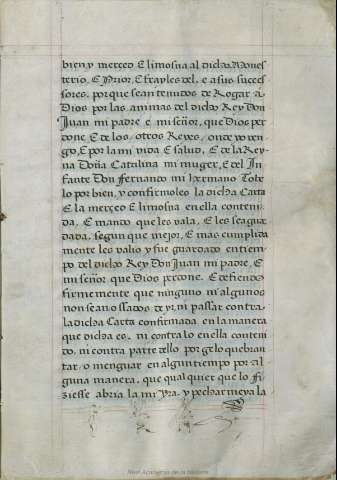 bien y merced E limosna al dicho Mones
terio, E Prior, E frayles del, e a sus succes
sores, porque sean tenudos de Rogar a
Dios por las animas del dicho Rey Don
Juan mi padre e mi señor, que Dios per
done E de los otros Reyes, onde yo ven
go, E por la mi vida E salud, E de la Rey
na Doña Catalina mi muger, E del In
fante Don fernando mi hermano Tobe
lo por bien, y confirmoles la dicha Carta
E la merced E limosna en ella conteni
da, E mando que les vala, E les sea guar
dada, segun que mejor, E mas cumplida
mente les valio y fue guardado en tiem
po del dicho Rey Don Juan mi padre, E
mi señor que Dios perdone. E defiendo
firmemente que ninguno ni algunos
non sean ossados de yr, ni passar contra
la dicha Carta confirmada en la manera
que dicha es, ni contra lo en ella conteni
do, ni contra parte dello por gelo quebran
tar, o menguar en algun tiempo por al
guna manera, que qual quier que lo fi
ziesse abria la mi yra, y pecharmeya la
Real Academia de la Historia